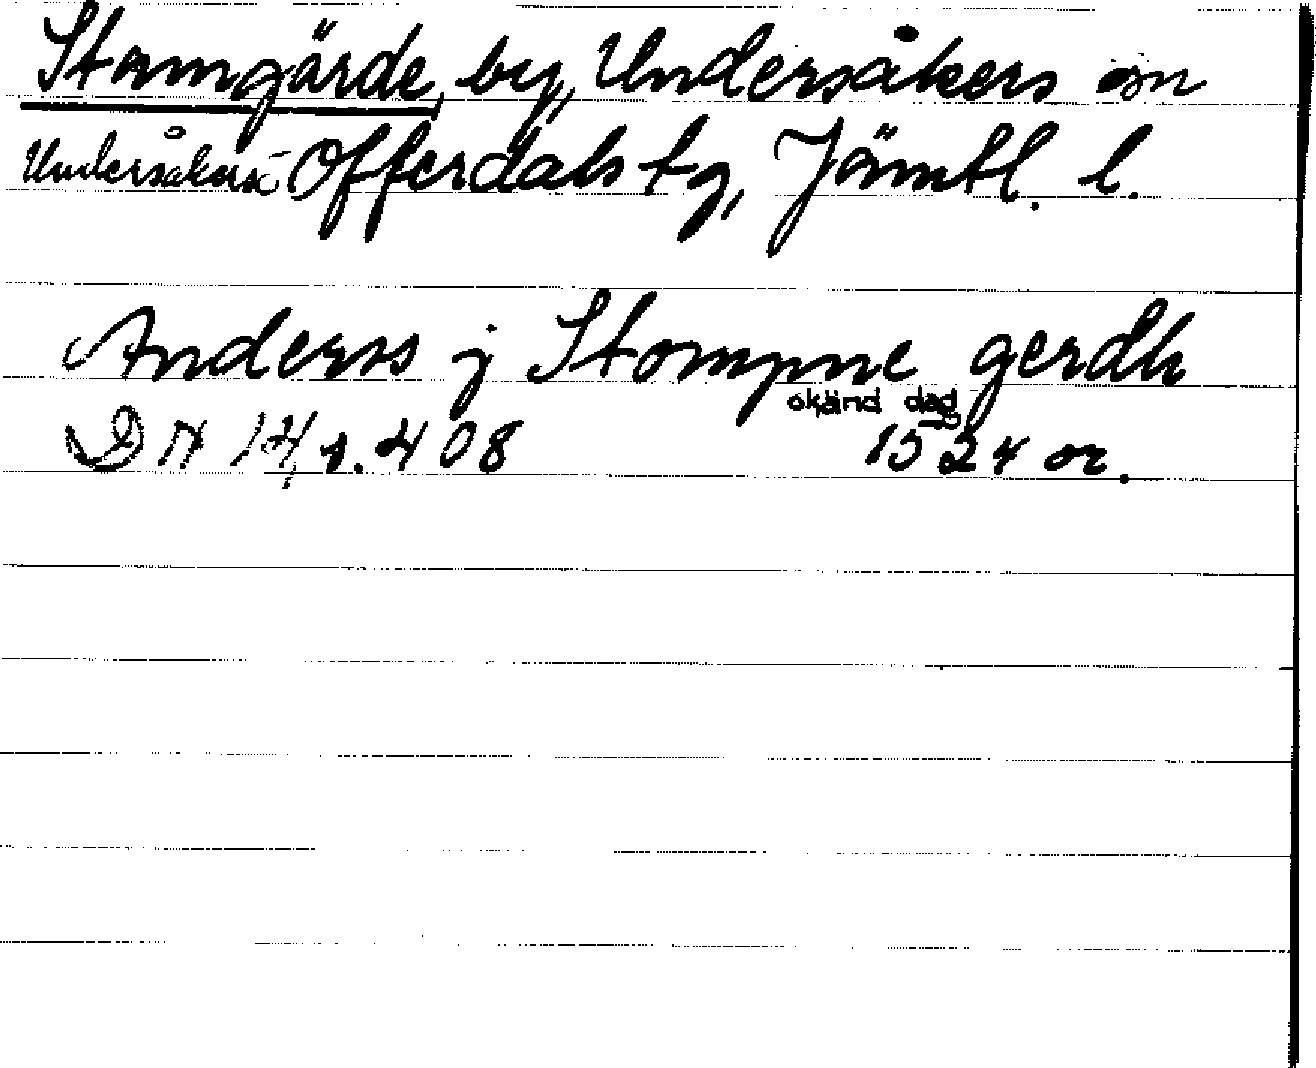 Stamgärde, by, Undersåkers sn
Undersåkers- Offerdals tg, Jämtl. l.
Anderss j Stompne gerdh
okänd dag
DN 14, s. 408 1524 or.